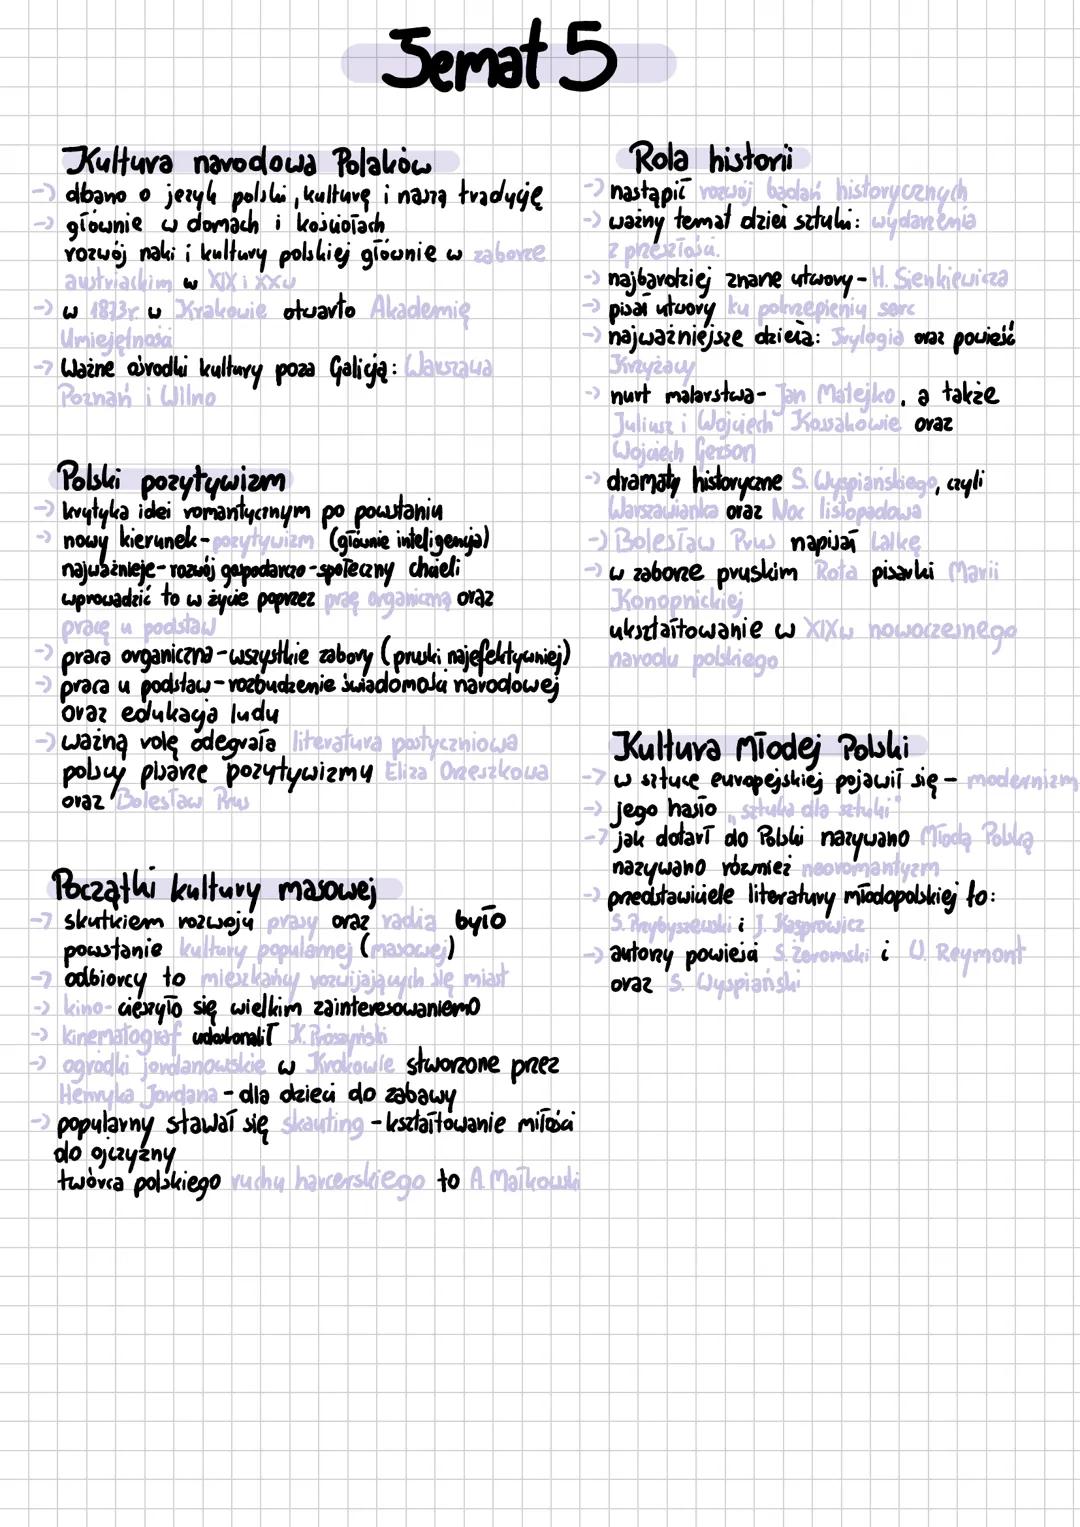 Temat 5
Kultura narodowa Polaków
-> dbano o język polski, kulturę i naszą tradycję
-> głównie w domach i kościołach
rozwój naki i kultury polskiej głównie w zaborze
austriackim w XIX i XXw
-> w 1873r. w Krakowie otwarto Akademię
Umiejętności
-> Ważne ośrodki kultury poza Galicją: Warszawa
Poznań i Wilno
Polski pozytywizm
-> krytyka idei romantycznym po powstaniu
-> nowy kierunek - pozytywizm (głównie inteligencja)
najważnieje - rozwój gospodarczo - społeczny chcieli
wprowadzić to w życie poprzez pracę organiczną oraz
pracę u podstaw
-> praca organiczna - wszystkie zabory (pruski najefektywniej)
-> praca u podstaw - rozbudzenie świadomości narodowej
oraz edukacja ludu
-> ważną rolę odegrała literatura postyczniowa
polscy pisarze pozytywizmu Eliza Orzeszkowa
oraz Bolesław Prus
Początki kultury masowej
-> skutkiem rozwoju prasy oraz radia było
powstanie kultury popularnej (masowej)
-> odbiorcy to mieszkańcy rozwijających się miast
-> kino - cieszyło się wielkim zainteresowaniemo
-> kinematograf udoskonalił K. Prószyński
-> ogródki jordanowskie w Krakowie stworzone przez
Henryka Jordana - dla dzieci do zabawy
-> popularny stawał się skauting - kształtowanie miłości
do ojczyzny
twórca polskiego ruchu harcerskiego to A. Małkowski
Rola historii
-> nastąpił rozwój badań historycznych
-> ważny temat dzieł sztuki: wydarzenia
z przeszłości.
-> najbardziej znane utwory - H. Sienkiewicza
-> pisał utwory ku pokrzepieniu serc
-> najważniejsze dzieła: Trylogia oraz powieść
Krzyżacy
-> nurt malarstwa - Jan Matejko, a także
Juliusz i Wojciech Kossakowie oraz
Wojciech Gerson
-> dramaty historyczne S. Wyspiańskiego, czyli
Warszawianka oraz Noc listopadowa
-> Bolesław Prus napisał Lalkę
-> w zaborze pruskim Rota pisarki Marii
Konopnickiej
ukształtowanie w XIXw nowoczesnego
narodu polskiego
Kultura Młodej Polski
-> w sztuce europejskiej pojawił się - modernizm
-> jego hasło „sztuka dla sztuki"
-> jak dotarł do Polski nazywano Młodą Polską
nazywano również neoromantyzm
-> przedstawiciele literatury młodopolskiej to:
S. Przybyszewski i J. Kasprowicz
-> autorzy powieści S. Żeromski i W. Reymont
oraz S. Wyspiański